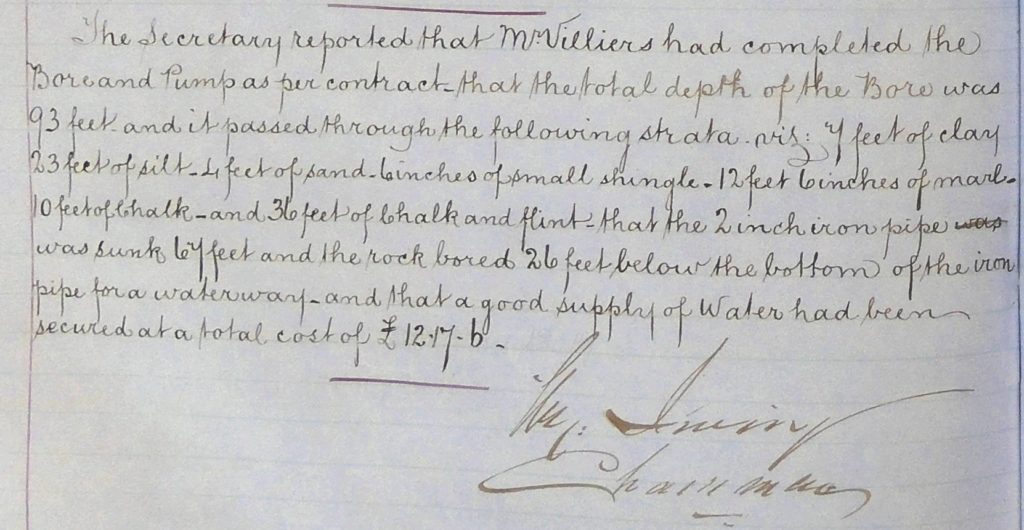 The Secretary reported that Mr Villiers had completed the
Bore and Pump as per contract - that the total depth of the Bore was
93 feet and it passed through the following strata. viz: 7 feet of clay
23 feet of silt - 4 feet of sand - 6 inches of small shingle - 12 feet 6 inches of marl -
10 feet of Chalk - and 36 feet of Chalk and flint - that the 2 inch iron pipe was
was sunk 67 feet and the rock bored 26 feet below the bottom of the iron
pipe for a waterway - and that a good supply of Water had been
secured at a total cost of £12.17.6 -
Irving
Chairman